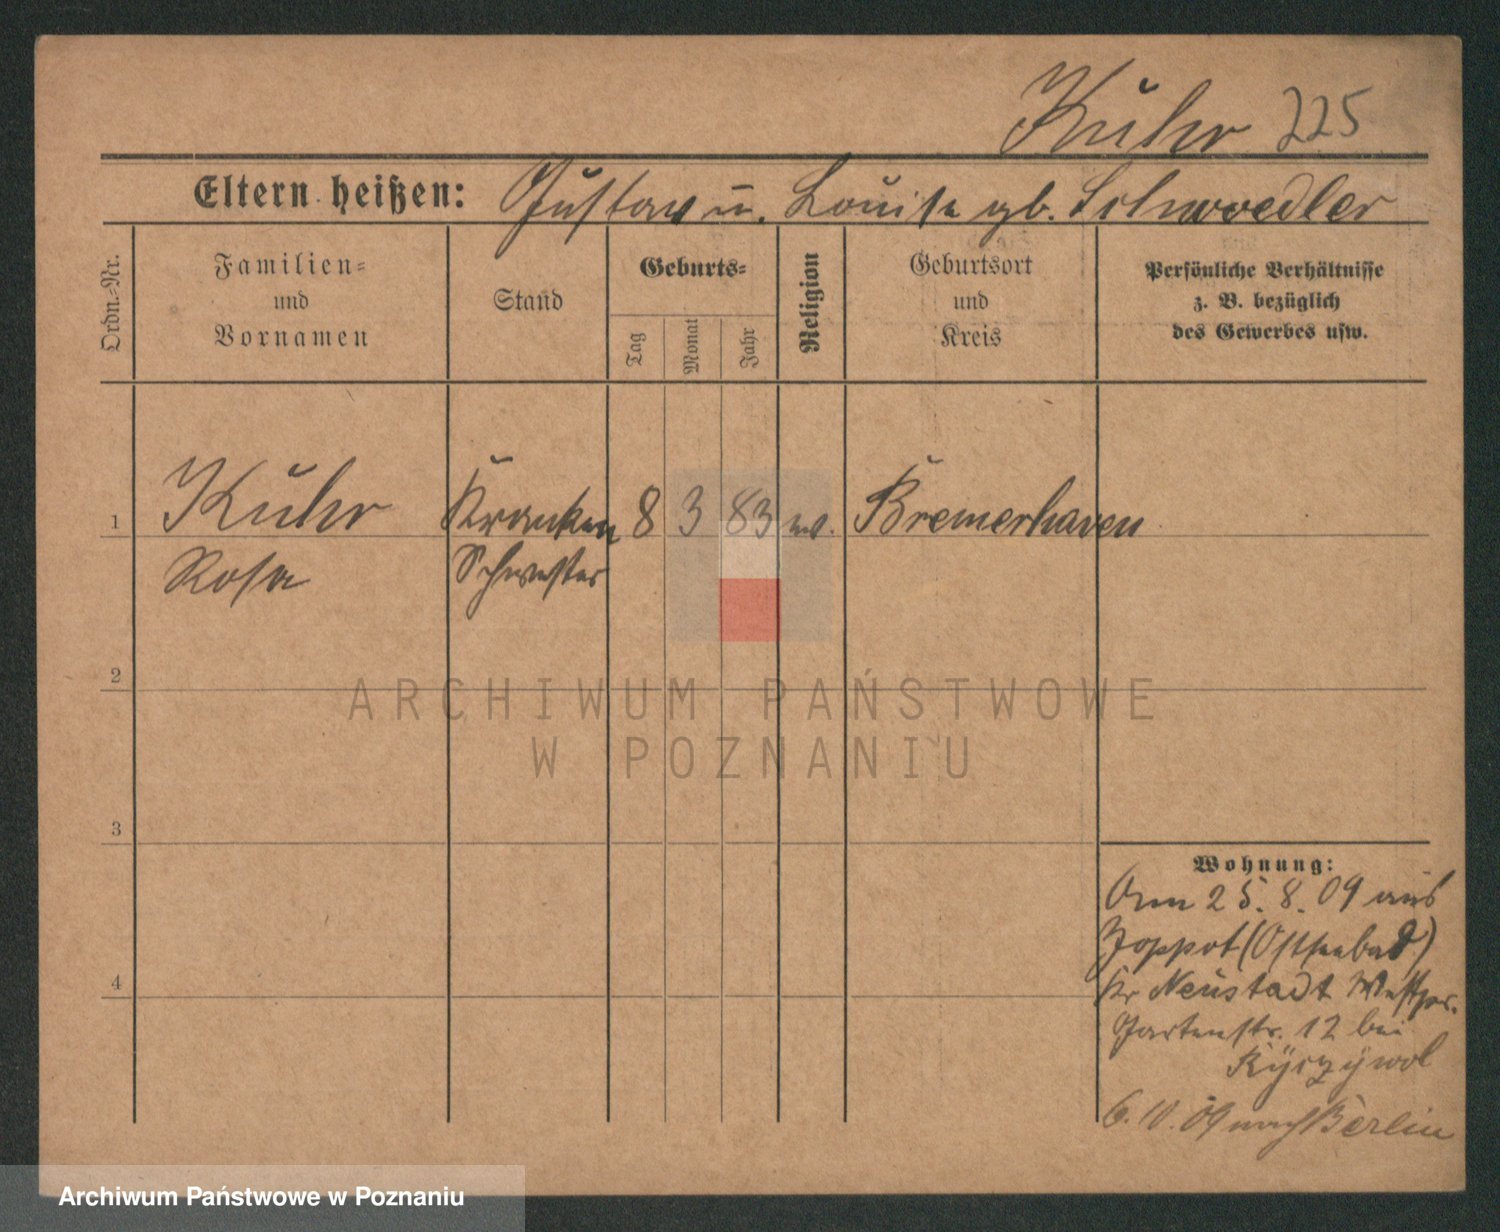 Kuhr 225
Eltern heißen: Gustav u. Louise gb. Schwoedler
Ordn.-Nr.
Familien-
und
Vornamen
Stand
Geburts-
Tag
Monat
Jahr
Religion
Geburtsort
und
Kreis
Persönliche Verhältnisse
z. B. bezüglich
des Gewerbes usw.
1 Kuhr Kranken 8 3 83 ev. Bremerhaven
Rosa Schwester
2
3
4
Wohnung:
Am 25. 8. 09 aus
Zoppot (Ostseebad)
Kr Neustadt Westpr.
Gartenstr. 12 bei
Ryczywol
6. 10. 09 nach Berlin
ARCHIWUM PAŃSTWOWE
W POZNANIU
Archiwum Państwowe w Poznaniu